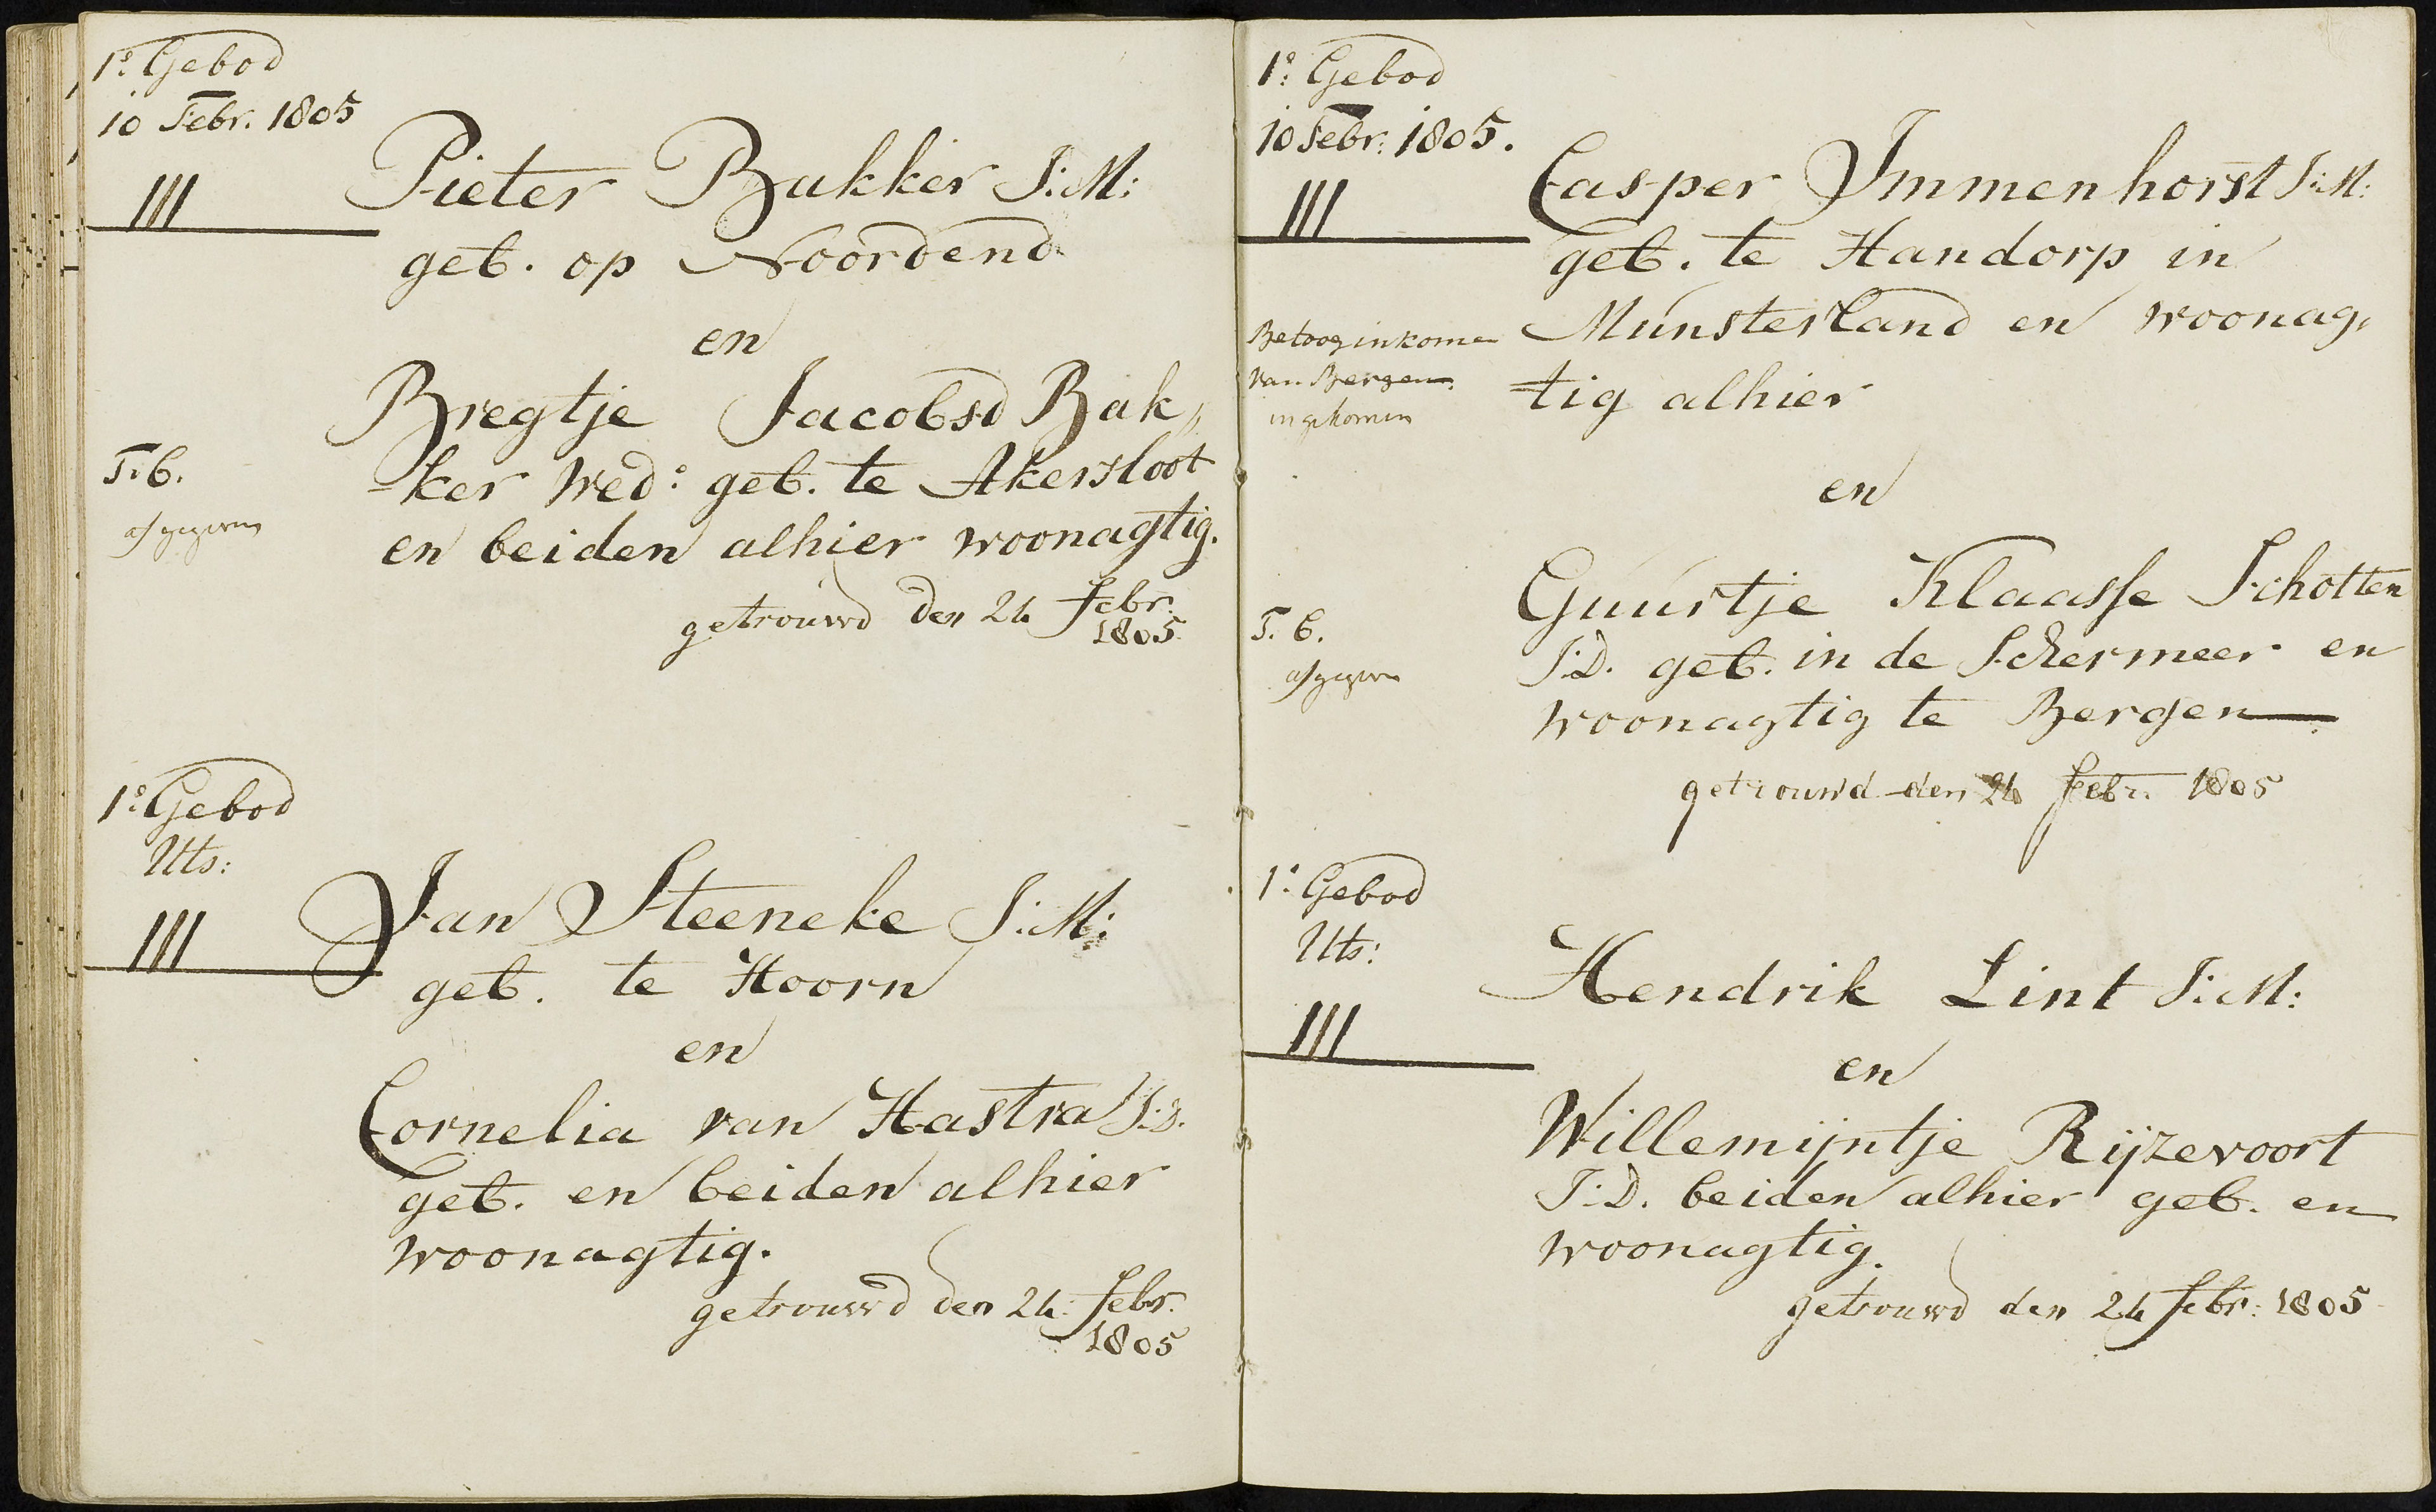 1º Gebod
10 Febr. 1805
III
Pieter Bakker J:M:
geb. op Noordend
en
Bregtje Jacobsd Bak„
T. b.
afgegeven
ker Wedº: geb. te Akersloot
en beiden alhier woonagtig.
getrouwd den 24 Febr.
1805
1º Gebod
Uts:
III
Jan Steeneke J:M:
geb. te Hoorn
en
Cornelia van Hastra J:D.
geb. en beiden alhier
woonagtig.
getrouwd den 24 Febr.
1805
1º Gebod
10 Febr: 1805.
III
Casper Immenhorst J:M:
geb. te Handorp in
Munsterland en woonag„
tig alhier
Betoog inkomen
van Bergen
ingekomen
en
Guurtje Klaasse Schotten
T. b.
afgegeven
J:D. geb. in de Schermeer en
woonagtig te Bergen
getrouwd den 24 Febr. 1805
1º Gebod
Uts:
III
Hendrik Lint J:M:
en
Willemijntje Rijzevoort
J:D. beiden alhier geb. en
woonagtig.
getrouwd den 24 Febr: 1805